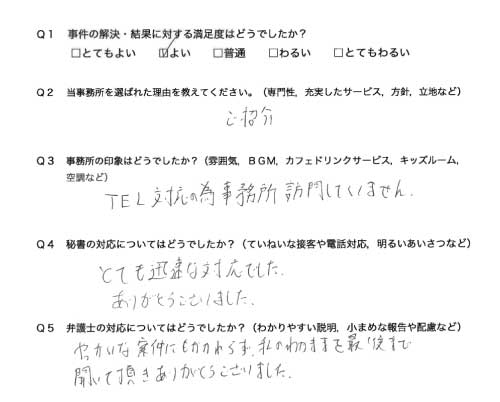 Q1 事件の解決・結果に対する満足度はどうでしたか？
□とてもよい ☑よい □普通 □わるい □とてもわるい
Q2 当事務所を選ばれた理由を教えてください。（専門性，充実したサービス，方針，立地など）
ご紹介
Q3 事務所の印象はどうでしたか？（雰囲気，ＢＧＭ，カフェドリンクサービス，キッズルーム，
空調など）
TEL対応の為事務所訪問してくいません.
Q4 秘書の対応についてはどうでしたか？（ていねいな接客や電話対応，明るいあいさつなど）
とても迅速な対応でした.
ありがとうございました.
Q5 弁護士の対応についてはどうでしたか？（わかりやすい説明，小まめな報告や配慮など）
やっかいな案件にもかかわらず,私のわがままを最後まで
聞いて頂きありがとうございました.